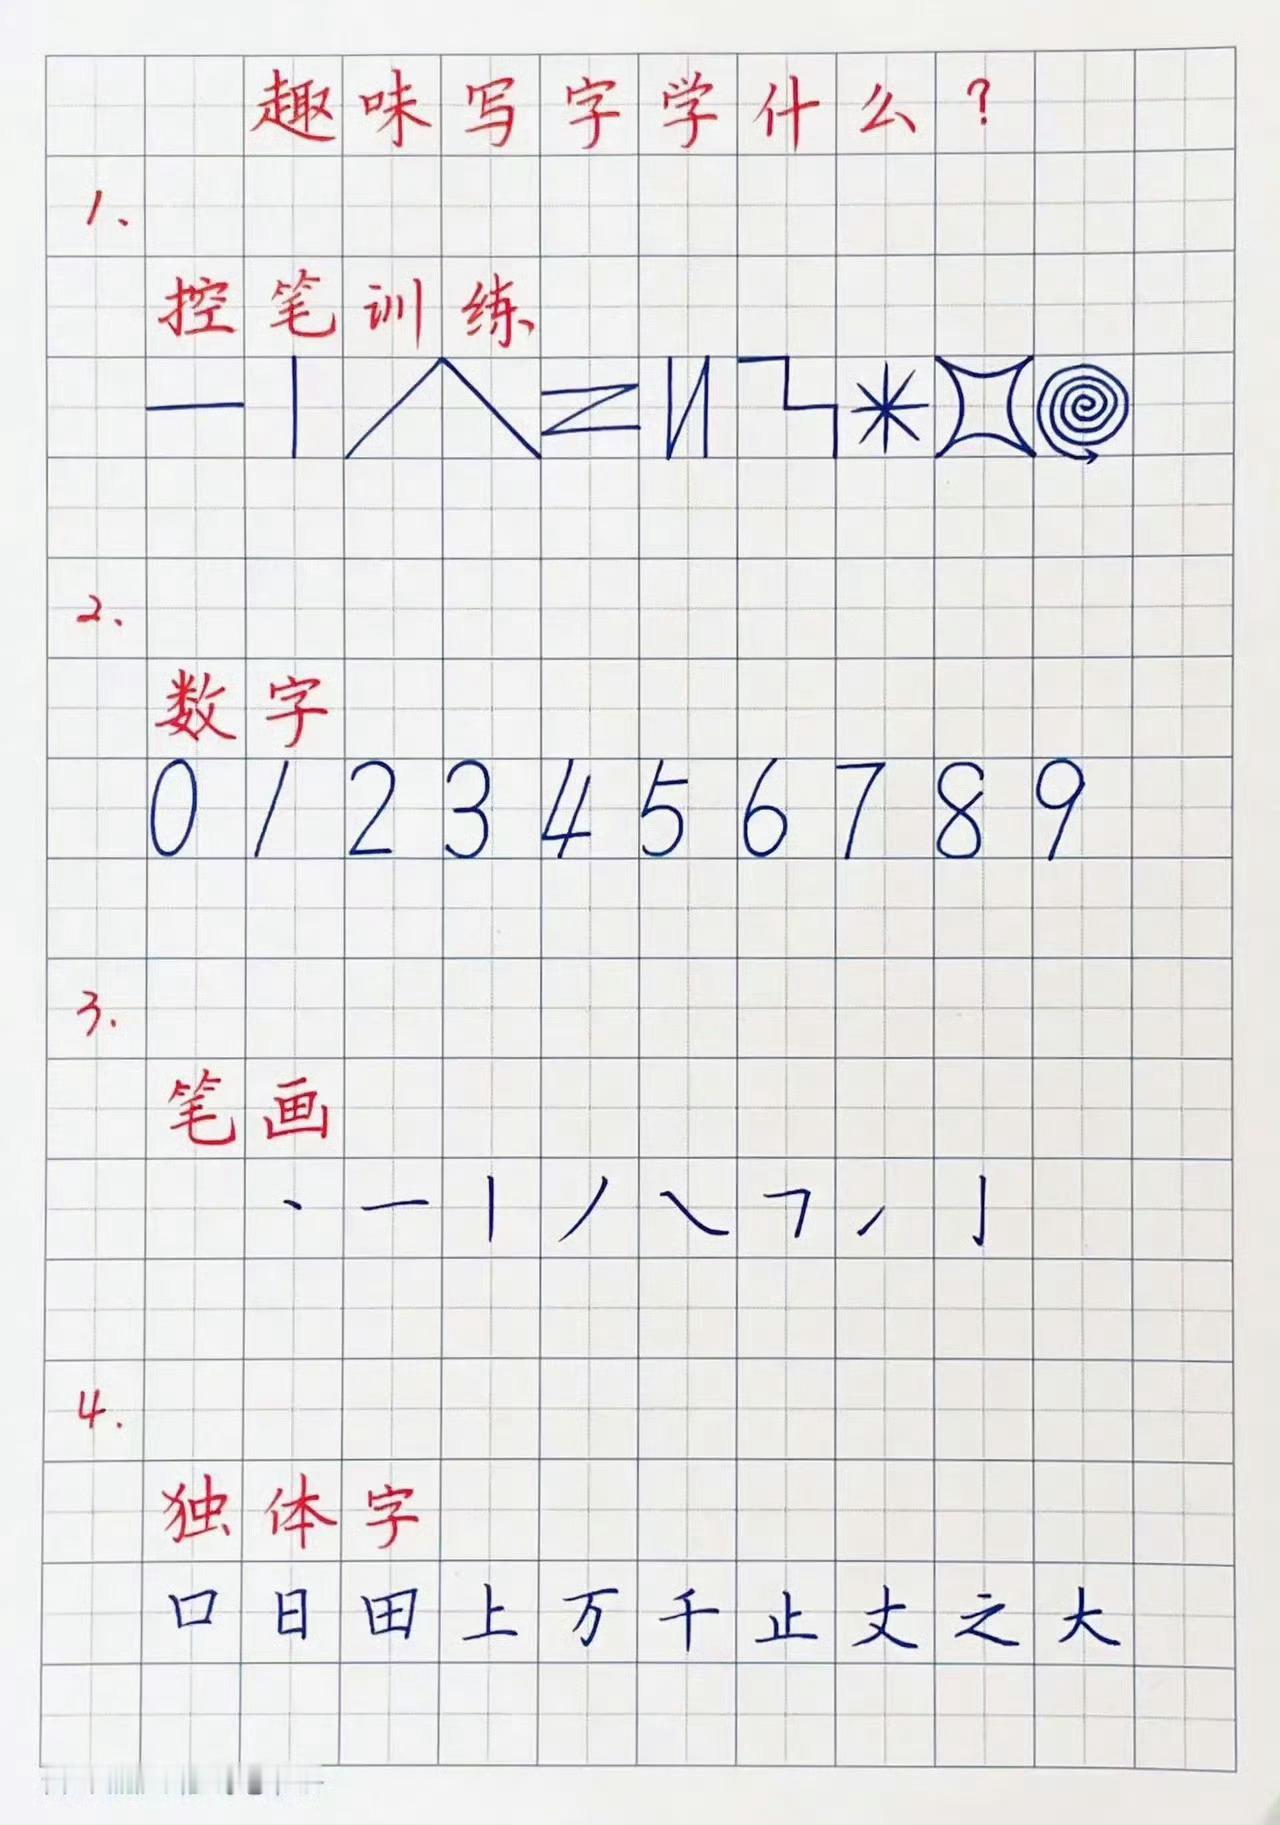 趣味写字学什么？
1、
控笔训练
2、
数字
0 1 2 3 4 5 6 7 8 9
3.
笔画
丶 一 丨 丿 ㇏ ㇕ ㇀ 亅
4.
独体字
口 日 田 上 万 千 止 丈 之 大